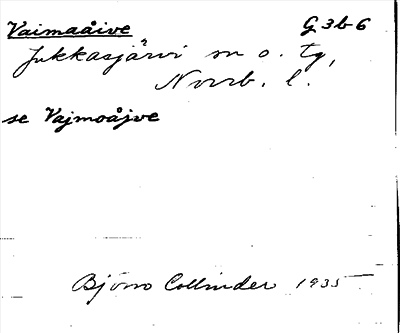 Vaimaåive G 3 b 6
Jukkasjärvi sn o. tg,
Norrb. l.
se Vajmoåjve
Björn Collinder 1935